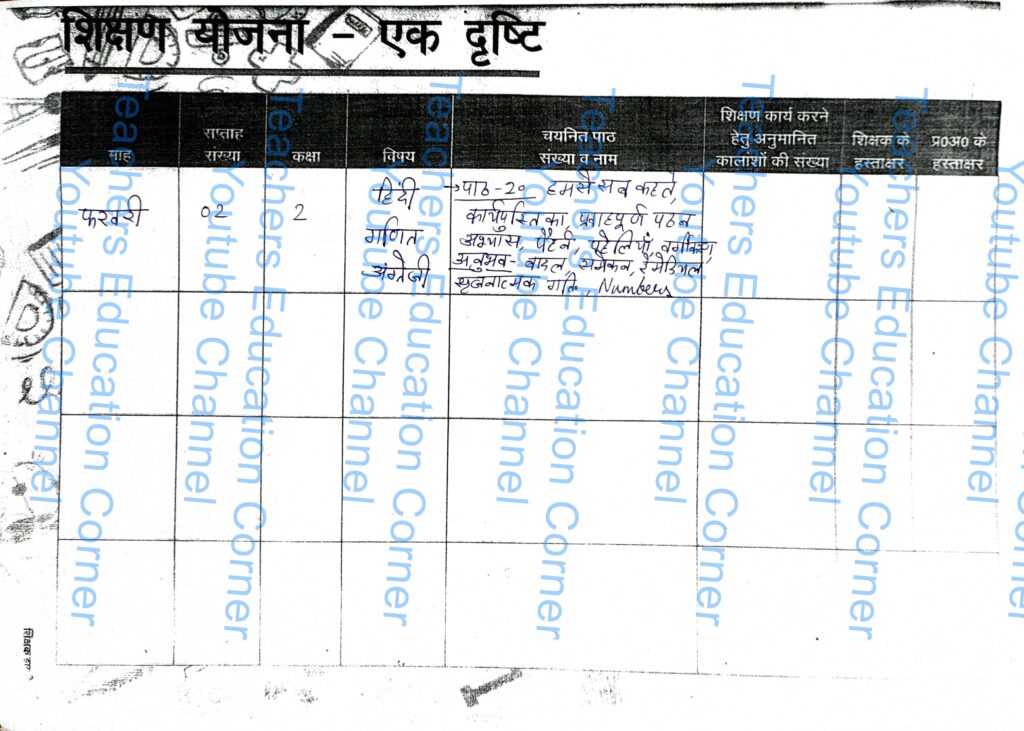 शिक्षण योजना – एक दृष्टि
माह
सप्ताह
संख्या
कक्षा
विषय
चयनित पाठ
संख्या व नाम
शिक्षण कार्य करने
हेतु अनुमानित
कालाशों की संख्या
शिक्षक के
हस्ताक्षर
प्र०अ० के
हस्ताक्षर
फरवरी
02
2
हिंदी
गणित
अंग्रेजी
→पाठ-20 हमसे सब कहते,
कार्यपुस्तिका, प्रवाहपूर्ण पठन
अभ्यास, पैटर्न, पहेलियाँ, वर्गीकरण,
अनुभव- बादल, आकलन, रेमेडियल
सृजनात्मक गति, Numbers
Teachers Education Corner
Youtube Channel
Teachers Education Corner
Youtube Channel
Teachers Education Corner
Youtube Channel
Teachers Education Corner
Youtube Channel
Teachers Education Corner
Youtube Channel
Teachers Education Corner
Youtube Channel
Teachers Education Corner
Youtube Channel
शिक्षक